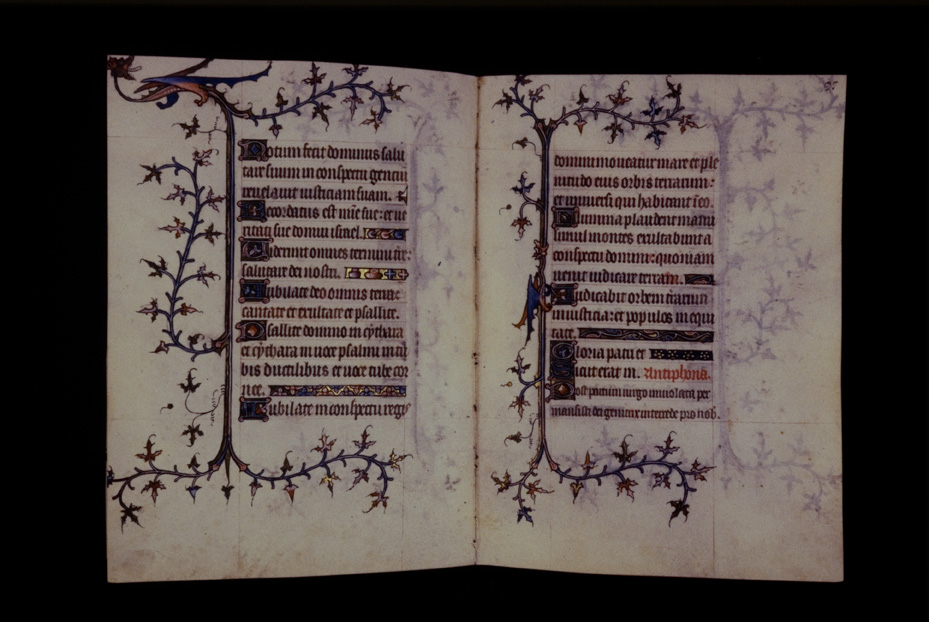 Notum fecit dominus salu
tare suum in conspectu gentiu
reuelauit iusticiam suam.
Recordatus est mie sue: et ue
ritatis sue domui israel.
Uiderunt omnes termini tre:
salutare dei nostri.
Iubilate deo omnis terra:
cantate et exultate et psallite.
Psallite domino in cythara
et cythara in uoce psalmi in tu
bis ductilibus et uoce tube cor
nee.
Iubilate in conspectu regis
domini moueatur mare et ple
nitudo eius orbis terrarum:
et uniuersi qui habitant in eo.
Flumina plaudent manu
simul montes exultabunt a
conspectu domini: quoniam
uenit iudicare terram.
Iudicabit orbem terrarum
in iusticia: et populos in equi
tate.
Gloria patri et
Sicut erat in. Antiphona.
Post partum uirgo inuiolata per
mansisti dei genitrix intercede pro nob.